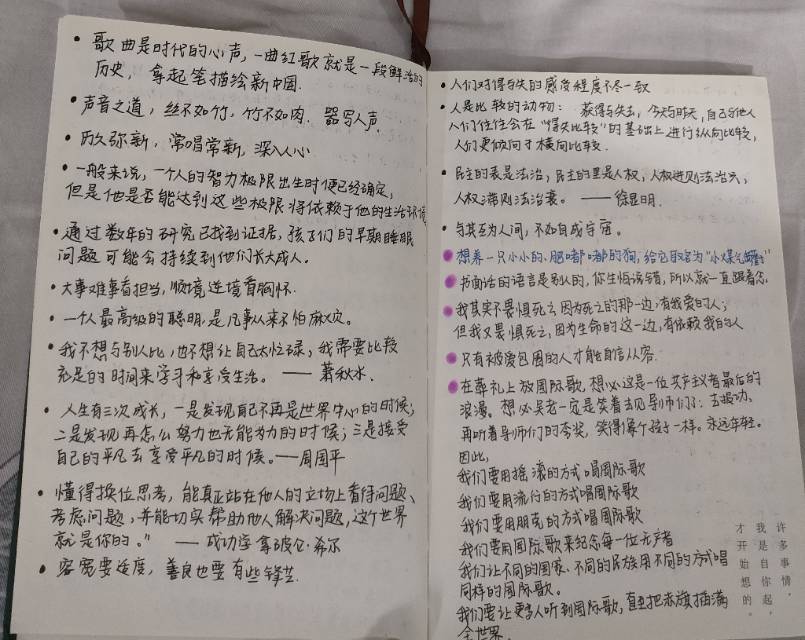 • 歌曲是时代的心声，一曲红歌就是一段鲜活的
历史，拿起笔描绘新中国.
• 声音之道，丝不如竹，竹不如肉. 器写人声.
• 历久弥新，常唱常新，深入人心
• 一般来说，一个人的智力极限出生时便已经确定，
但是他是否能达到这些极限将依赖于他的生活环境
• 通过数年的研究已找到证据，孩子们的早期睡眠
问题可能会持续到他们长大成人.
• 大事难事看担当，顺境逆境看胸怀.
• 一个人最高级的聪明，是凡事从来不怕麻烦.
• 我不想与别人比，也不想让自己太忙碌，我需要比较
充足的时间来学习和享受生活。——萧秋水.
• 人生有三次成长，一是发现自己不再是世界中心的时候；
二是发现再怎么努力也无能为力的时候；三是接受
自己的平凡去享受平凡的时候。—周国平
• 懂得换位思考，能真正站在他人的立场上看待问题、
考虑问题，并能切实帮助他人解决问题，这个世界
就是你的。” ——成功学拿破仑·希尔
• 容宽要适度，善良也要有些锋芒.
• 人们对得与失的感受程度不尽一致
• 人是比较的动物： 获得与失去，今天与昨天，自己与他人
人们往往会在“得失比较”的基础上进行纵向比较，
人们更倾向于横向比较.
• 民主的表是法治，民主的里是人权，人权进则法治兴，
人权滞则法治衰。 ——徐显明.
• 与其互为人间，不如自成宇宙。
想养一只小小的、肥嘟嘟的狗，给它取名为“小煤气罐”
书面话的语言是别人的，你生怕误错，所以就一直跟着念.
我其实不畏惧死亡，因为死亡的那一边，有我爱的人；
但我又畏惧死亡，因为生命的这一边，有依赖我的人
只有被爱包围的人才能自信从容.
在葬礼上放国际歌，想必这是一位共产主义者最后的
浪漫。想必吴老一定是笑着去见导师们了：去报功，
再听着导师们的夸奖，笑得像个孩子一样。永远年轻。
因此，
我们要用摇滚的方式唱国际歌
我们要用流行的方式唱国际歌
我们要用朋克的方式唱国际歌
我们要用国际歌来纪念每一位无产者
我们让不同的国家、不同的民族用不同的方式唱
同样的国际歌。
我们要让更多人听到国际歌，直至把赤旗插满
全世界.
许多事情，
我是自你起，
才开始想的。